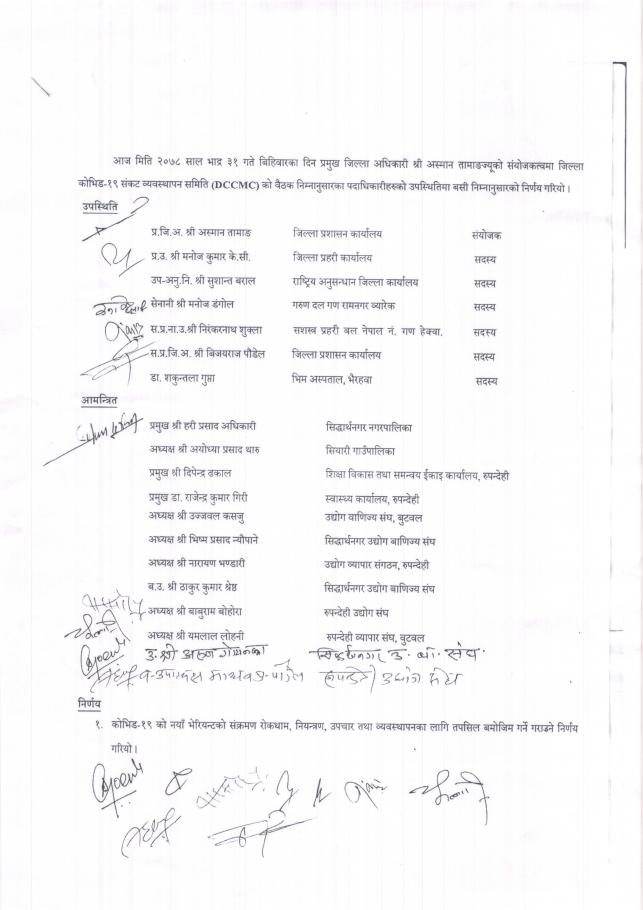 आज मिति २०७८ साल भाद्र ३१ गते बिहिवारका दिन प्रमुख जिल्ला अधिकारी श्री अस्मान तामाङज्यूको संयोजकत्वमा जिल्ला
कोभिड-१९ संकट व्यवस्थापन समिति (DCCMC) को वैठक निम्नानुसारका पदाधिकारीहरुको उपस्थितिमा बसी निम्नानुसारको निर्णय गरियो।
उपस्थिति
प्र.जि.अ. श्री अस्मान तामाङ जिल्ला प्रशासन कार्यालय संयोजक
प्र.उ. श्री मनोज कुमार के.सी. जिल्ला प्रहरी कार्यालय सदस्य
उप-अनु.नि. श्री सुशान्त बराल राष्ट्रिय अनुसन्धान जिल्ला कार्यालय सदस्य
सेनानी श्री मनोज डंगोल गरुण दल गण रामनगर ब्यारेक सदस्य
स.प्र.ना.उ.श्री निरंकरनाथ शुक्ला सशस्त्र प्रहरी बल नेपाल नं. गण हेक्वा. सदस्य
स.प्र.जि.अ. श्री बिजयराज पौडेल जिल्ला प्रशासन कार्यालय सदस्य
डा. शकुन्तला गुप्ता भिम अस्पताल, भैरहवा सदस्य
आमन्त्रित
प्रमुख श्री हरी प्रसाद अधिकारी सिद्धार्थनगर नगरपालिका
अध्यक्ष श्री अयोध्या प्रसाद थारु सियारी गाउँपालिका
प्रमुख श्री दिपेन्द्र ढकाल शिक्षा विकास तथा समन्वय ईकाइ कार्यालय, रुपन्देही
प्रमुख डा. राजेन्द्र कुमार गिरी स्वास्थ्य कार्यालय, रुपन्देही
अध्यक्ष श्री उज्जवल कसजु उद्योग वाणिज्य संघ, बुटवल
अध्यक्ष श्री भिष्म प्रसाद न्यौपाने सिद्धार्थनगर उद्योग बाणिज्य संघ
अध्यक्ष श्री नारायण भण्डारी उद्योग व्यापार संगठन, रुपन्देही
ब.उ. श्री ठाकुर कुमार श्रेष्ठ सिद्धार्थनगर उद्योग बाणिज्य संघ
अध्यक्ष श्री बाबुराम बोहोरा रुपन्देही उद्योग संघ
अध्यक्ष श्री यमलाल लोहनी रुपन्देही व्यापार संघ, बुटवल
उ. श्री अरुण सिद्धार्थनगर उ. वा. संघ.
रुपन्देही उद्योग संघ
निर्णय
१. कोभिड-१९ को नयाँ भेरियन्टको संक्रमण रोकथाम, नियन्त्रण, उपचार तथा व्यवस्थापनका लागि तपसिल बमोजिम गर्ने गराउने निर्णय
गरियो।